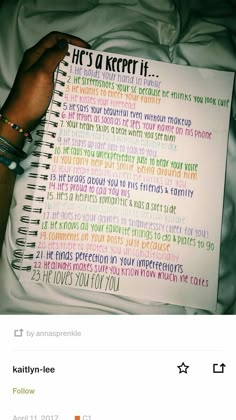 He's a keeper if...
1. He holds your hand in public
2. He screenshots your sc because he thinks you look cute
3. He wants to meet your family
4. He kisses your forehead
5. He says your beautiful even without makeup
6. He smiles as soon as he sees your name on his phone
7. Your heart skips a beat when you see him
9. He stays up late just to talk to you
10. He calls you unexpectedly just to hear your voice
11. You can't help but smile being around him
13. He brags about you to his friends & family
14. He's proud to call you his
15. He's a hopeless romantic & has a soft side
17. He goes to your games to shamelessly cheer for you
18. He knows all your favorite things to do & places to go
19. Comments on your posts just because
20. He's there to protect you unconditionally
21. He finds perfection in your imperfections
22. He always makes sure you know how much he cares
23. He loves you for you
by annasprenkle
kaitlyn-lee
Follow
April 11, 2017
C1